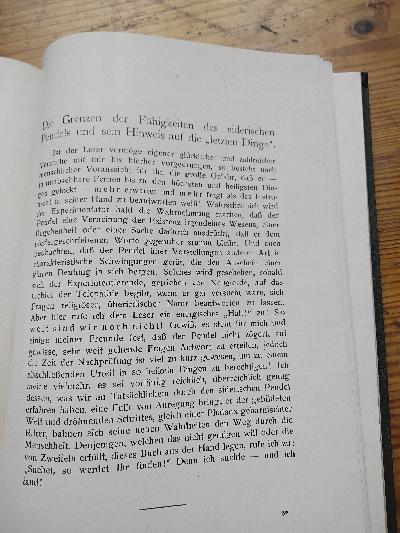 Die Grenzen der Fähigkeiten des siderischen
Pendels und sein Hinweis auf die „letzten Dinge“.
Ist der Leser vermöge eigener glücklicher und zahlreicher
Versuche mit mir bis hierher vorgedrungen, so besteht nach
menschlicher Voraussicht für ihn die große Gefahr, daß er —
in unabsehbare Fernen bis zu den höchsten und heiligsten Din-
gen gelockt — mehr erwartet und mehr fragt als das Instru-
ment in seiner Hand zu beantworten weiß! Wahrscheinlich wird
der Experimentator bald die Wahrnehmung machen, daß der
Pendel eine Verneinung der Existenz irgendeines Wesens, einer
Begebenheit oder einer Sache dadurch ausdrückt, daß er dem
niedergeschriebenen Worte gegenüber stumm bleibt. Und auch
beobachten, daß der Pendel über Vorstellungen anderer Art in
charakteristische Schwingungen gerät, die den Anschein einer
klaren Deutung in sich bergen. Solches wird geschehen, sobald
sich der Experimentierende, getrieben von Neugierde, auf das
Gebiet der Telepathie begibt, wenn er gar versucht wäre, sich
Fragen religiöser, übersinnlicher Natur beantworten zu lassen.
Aber hier rufe ich dem Leser ein energisches „Halt!“ zu! So
weit sind wir noch nicht! Gewiß, es steht für mich und
einige meiner Freunde fest, daß der Pendel nicht zögert, auf
gewisse, sehr weit gehende Fragen Antwort zu erteilen, jedoch
die Zeit der Nachprüfung ist viel zu kurz gewesen, um zu einem
abschließenden Urteil in so heiklen Dingen zu berechtigen! Ich
meine vielmehr, es sei vorläufig reichlich, überreichlich genug
dessen, was wir an Tatsächlichem durch den siderischen Pendel
erfahren haben, eine Fülle von Anregung bringt er der gebildeten
Welt und dröhnenden Schrittes, gleich einer Phalanx geharnischter
Ritter, bahnen sich seine neuen Wahrheiten den Weg durch die
Menschheit. Denjenigen, welchen das nicht genügen will oder die
von Zweifeln erfüllt, dieses Buch aus der Hand legen, rufe ich zu:
„Suchet, so werdet Ihr finden!“ Denn ich suchte — und ich
fand!